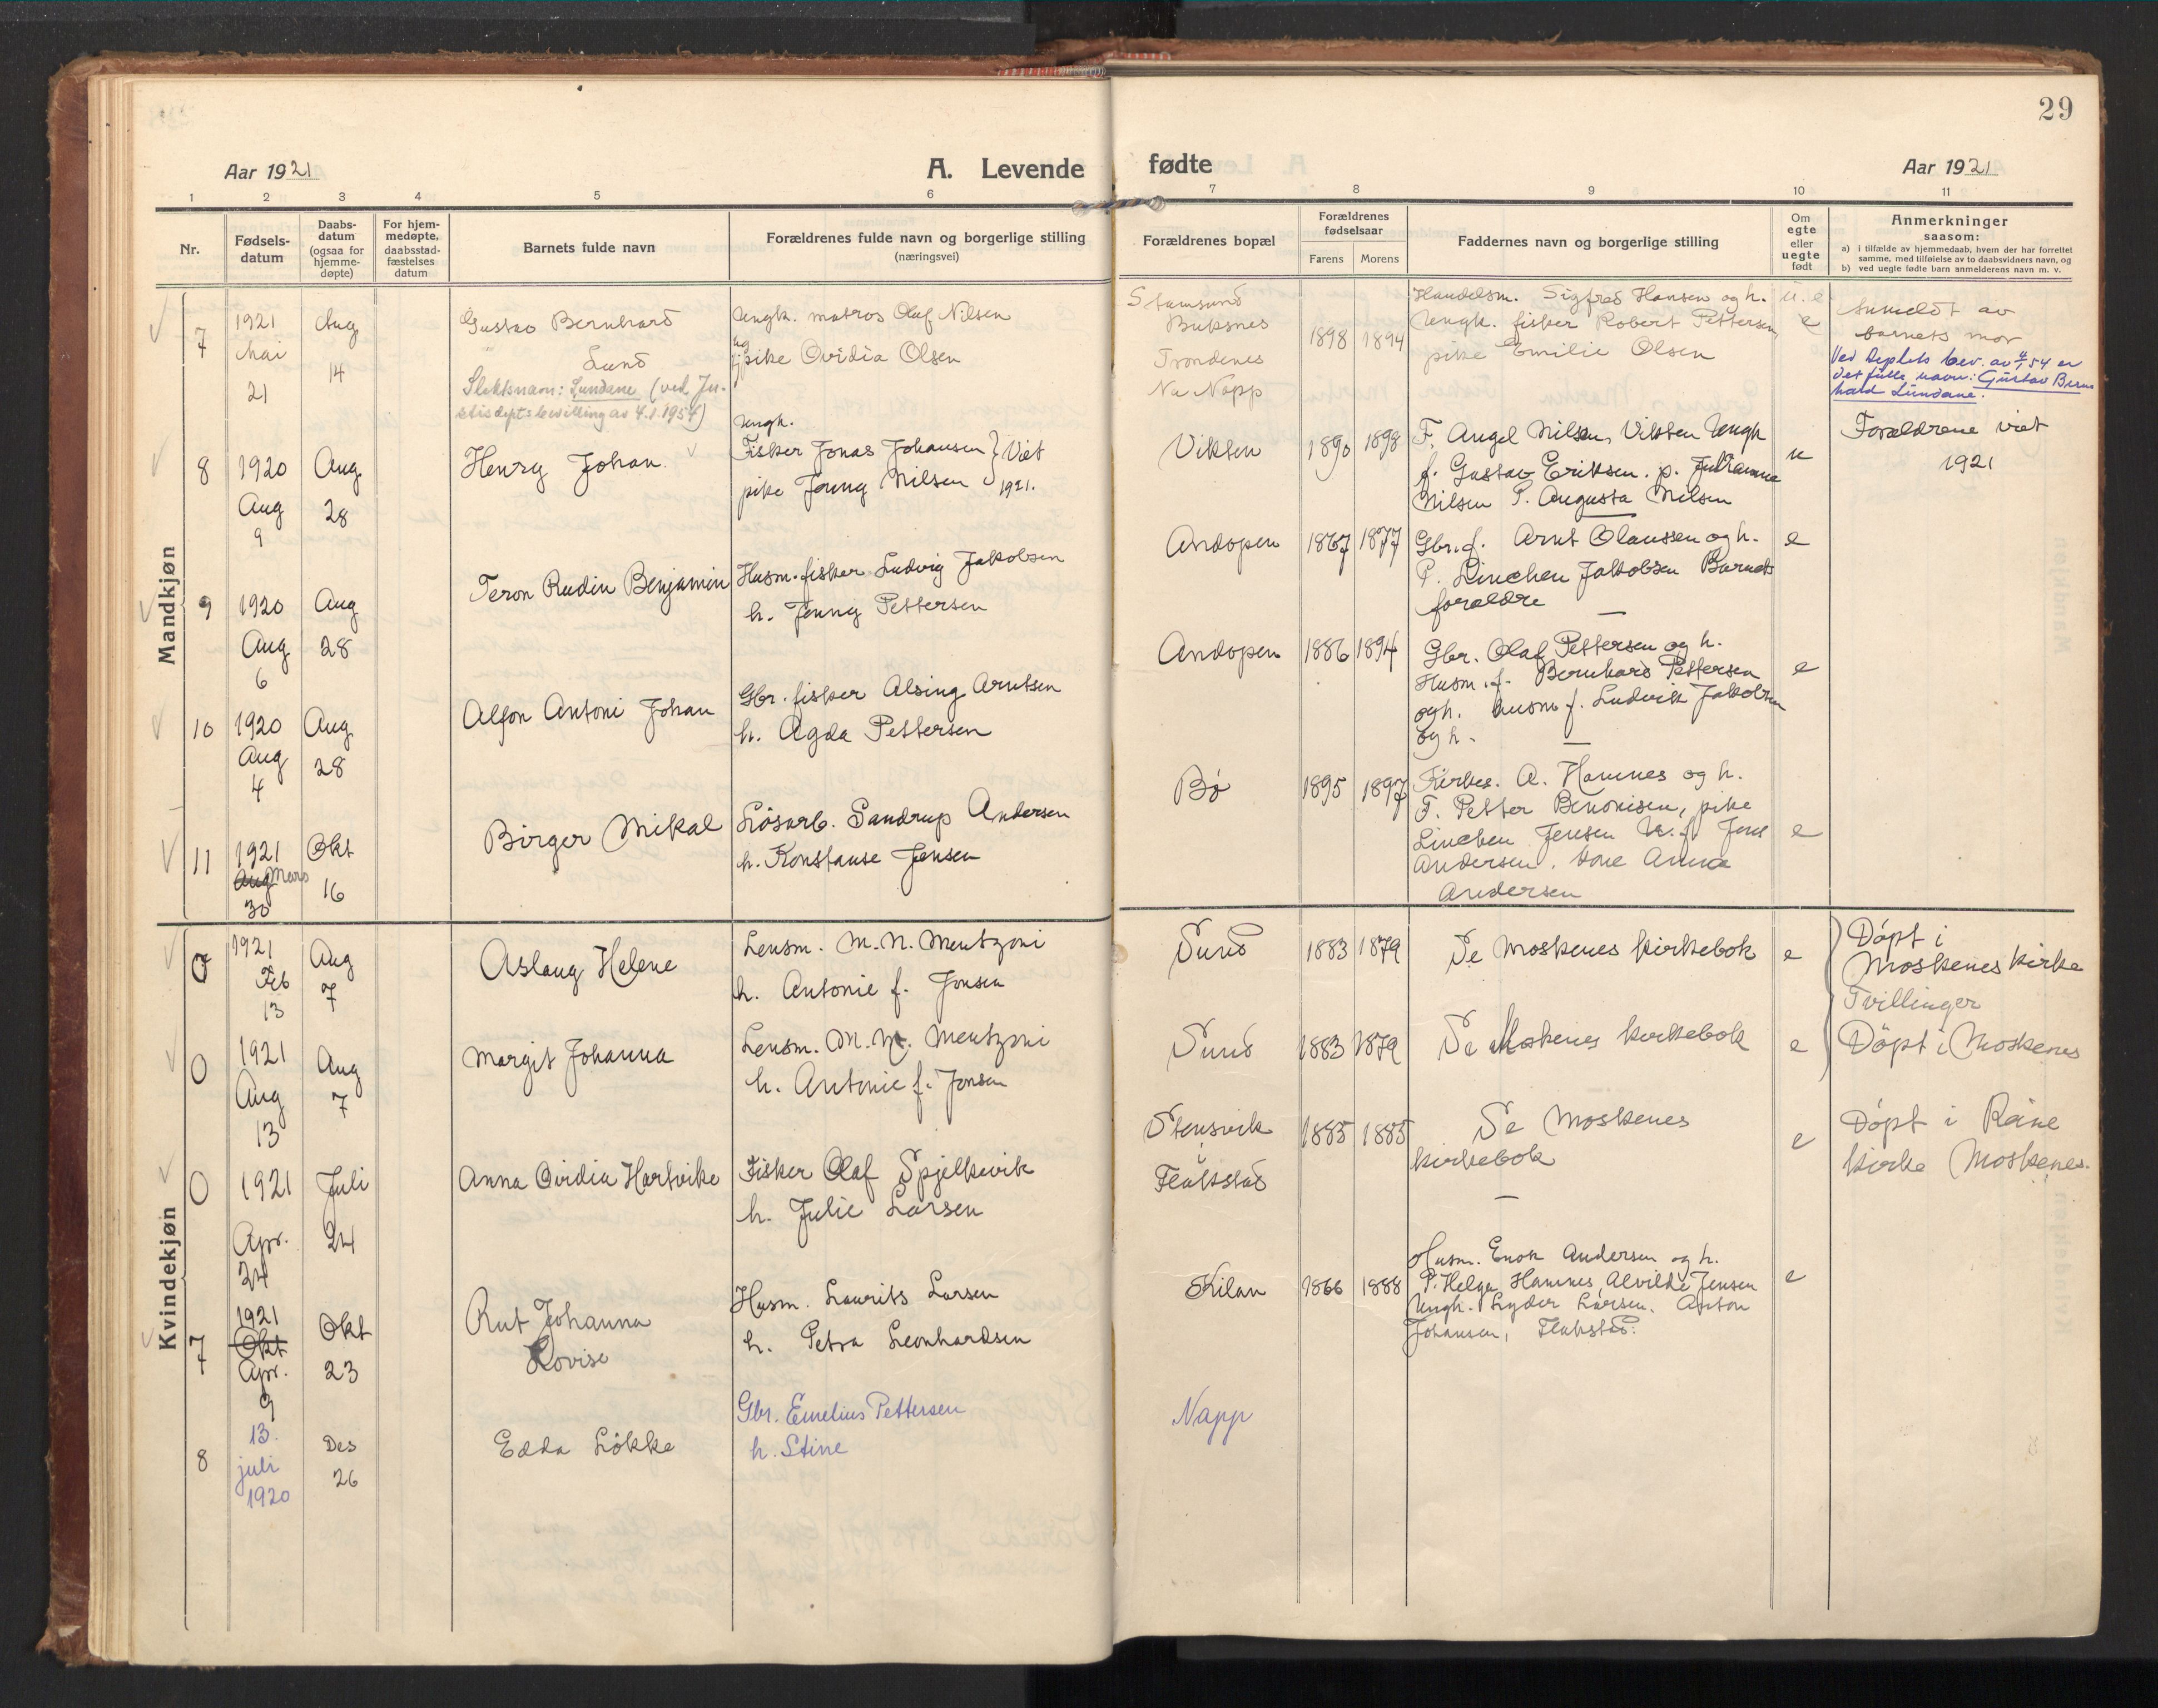 29
Aar 1921
A. Levende
fødte
Aar 1921
1 2 3 4 5 6 7 8 9 10 11
Nr.
Fødsels-
datum
Daabs-
datum
(ogsaa for
hjemme-
døpte)
For hjem-
medøpte,
daabsstad-
fæstelses
datum
Barnets fulde navn
Forældrenes fulde navn og borgerlige stilling
(næringsvei)
Forældrenes bopæl
Forældrenes
fødselsaar
Farens Morens
Faddernes navn og borgerlige stilling
Om
egte
eller
uegte
født
Anmerkninger
saasom:
a) i tilfælde av hjemmedaab, hvem der har forrettet
samme, med tilføielse av to daabsvidners navn, og
b) ved uegte fødte barn anmelderens navn m. v.
Mandkjøn
7
1921
Mai
21
Aug
14
Gustav Bernhard
Lund
Slektsnavn: Lundane (ved Ju-
stisdepts bevilling av 4.1.1954)
Ungk. matros Olaf Nilsen
og
pike Ovidia Olsen
Stamsund
Buksnes
Trondenes
Na Napp
1898 1894
Handelsm. Sigfred Hansen og h.
Ungk. fisker Robert Pettersen,
pike Emilie Olsen
u. e
e
Anmeldt av
barnets mor
Ved Jdeplets bev. av 4/1 54 er
det fulle navn: Gustav Bern-
hard Lundane.
8
1920
Aug
9
Aug
28
Henry Johan
Ungk.
Fisker Jonas Johansen } Viet
pike Jenny Nilsen 1921.
Vikten
1890 1898
F. Angel Nilsen, Vikten Ungk
f. Gustav Eriksen. p. Julianne
Nilsen P. Augusta Nilsen
u
Forældrene viet
1921
9
1920
Aug
6
Aug
28
Teron Rudin Benjamin
Husm. fisker Ludvig Jakobsen
h. Jenny Pettersen
Andopen
1867 1877
Gbr. f. Arnt Olaussen og h.
P. Linchen Jakobsen Barnets
forældre
e
10
1920
Aug
4
Aug
28
Alfon Antoni Johan
Gbr. fisker Alsing Arntsen
h. Agda Pettersen
Andopen
1886 1894
Gbr. Olaf Pettersen og h.
Husm. f. Bernhard Pettersen
og h. husm f. Ludvik Jakobsen
og h.
e
11
1921
Aug Mars
30
Okt
16
Birger Mikal
Løsarb. Sandrup Andersen
h. Konstanse Jensen
Bø
1895 1897
Kirkes. A. Hamnes og h.
F. Petter Benonisen, pike
Linchen Jensen U. f. Jens
Andersen. kone Anna
Andersen
e
Kvindekjøn
0
1921
Feb
13
Aug
7
Aslaug Helene
Lensm. M. N. Mentzoni
h. Antonie f. Jonsen
Sund
1883 1879
Se Moskenes kirkebok
e
Døpt i
Moskenes kirke
Tvillinger
0
1921
Aug
13
Aug
7
Margit Johanna
Lensm. M. N. Mentzoni
h. Antonie f. Jonsen
Sund
1883 1879
Se Moskenes kirkebok
e
Døpt i Moskenes
0
1921
Apr.
24
Juli
24
Anna Ovidia Hartvike
Fisker Olaf Spjelkevik
h. Julie Larsen
Stensvik
i
Flakstad
1885 1885
Se Moskenes
kirkebok
e
Døpt i Reine
kirke Moskenes.
7
1921
Okt
Apr.
9
Okt
23
Rut Johanna
Lovise
Husm. Laurits Larsen
h. Petra Leonhardsen
Kilan
1866 1888
Husm. Enok Andersen og h.
P. Helga Hamnes, Alvilde Jensen
Ungk. Lyder Larsen. Anton
Johansen, Flakstad.
e
8
13.
juli
1920
Des
26
Edda Løkke
Gbr. Emelius Pettersen
h. Stine
Napp